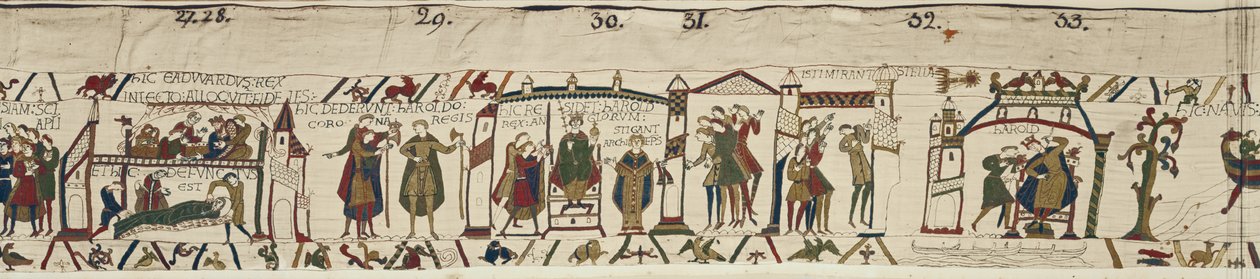 27. 28.
29.
30.
31.
32.
33.
SIAM: SCI
APLI
HIC EADVVARDVS: REX
IN LECTO: ALLOQVIT: FIDELES:
ET HIC: DEFVNCTVS
EST
HIC DEDERVNT: HAROLDO:
CORONA REGIS
HIC RESIDET: HAROLD
REX: ANGLORVM:
STIGANT
ARCHIEPS
ISTI MIRANT STELLA
HAROLD
HIC: NAVIS